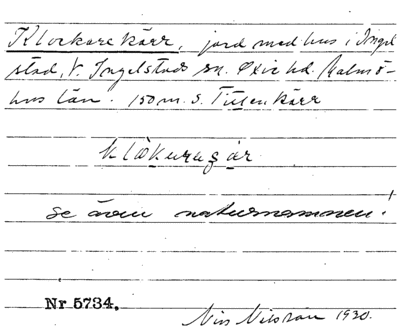 Klockarekärr, jord med hus i Ingel
stad, V. Ingelstads sn. Oxie hd. Malmö-
hus län. 150 m. S. Tullenkärr
se även naturnamnen!
Nr 5734.
Nils Nilsson 1930.